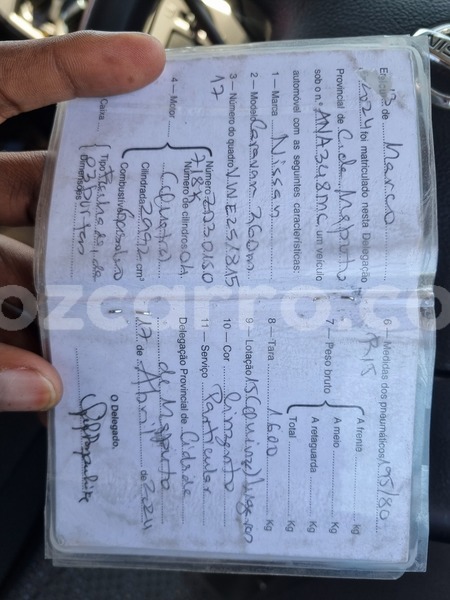 Em 13 de Março
2024 foi matriculado nesta Delegação
Provincial de Cide Maputo
sob o n.º ANA 348 MC um veículo
automóvel com as seguintes características:
1 — Marca Nissan
2 — Modelo Caravan 260m
3 — Número do quadro VWE25/815
17
4 — Motor
Número ZD30150
Número de cilindros 04
(Quatro)
Cilindrada 2992 cm³
Combustível Gasóleo
Caixa
Tipo
Dimensões
6 — Medidas dos pneumáticos 195/80
R15
7 — Peso bruto
À frente kg
A meio Kg
À retaguarda Kg
Total Kg
8 — Tara 1600 Kg
9 — Lotação 15 (Quinze) lugares
10 — Cor Cinzento
11 — Serviço Particular
Delegação Provincial de Cidade
de Maputo
17 de Abril de 2024
O Delegado,
ozcarro.co